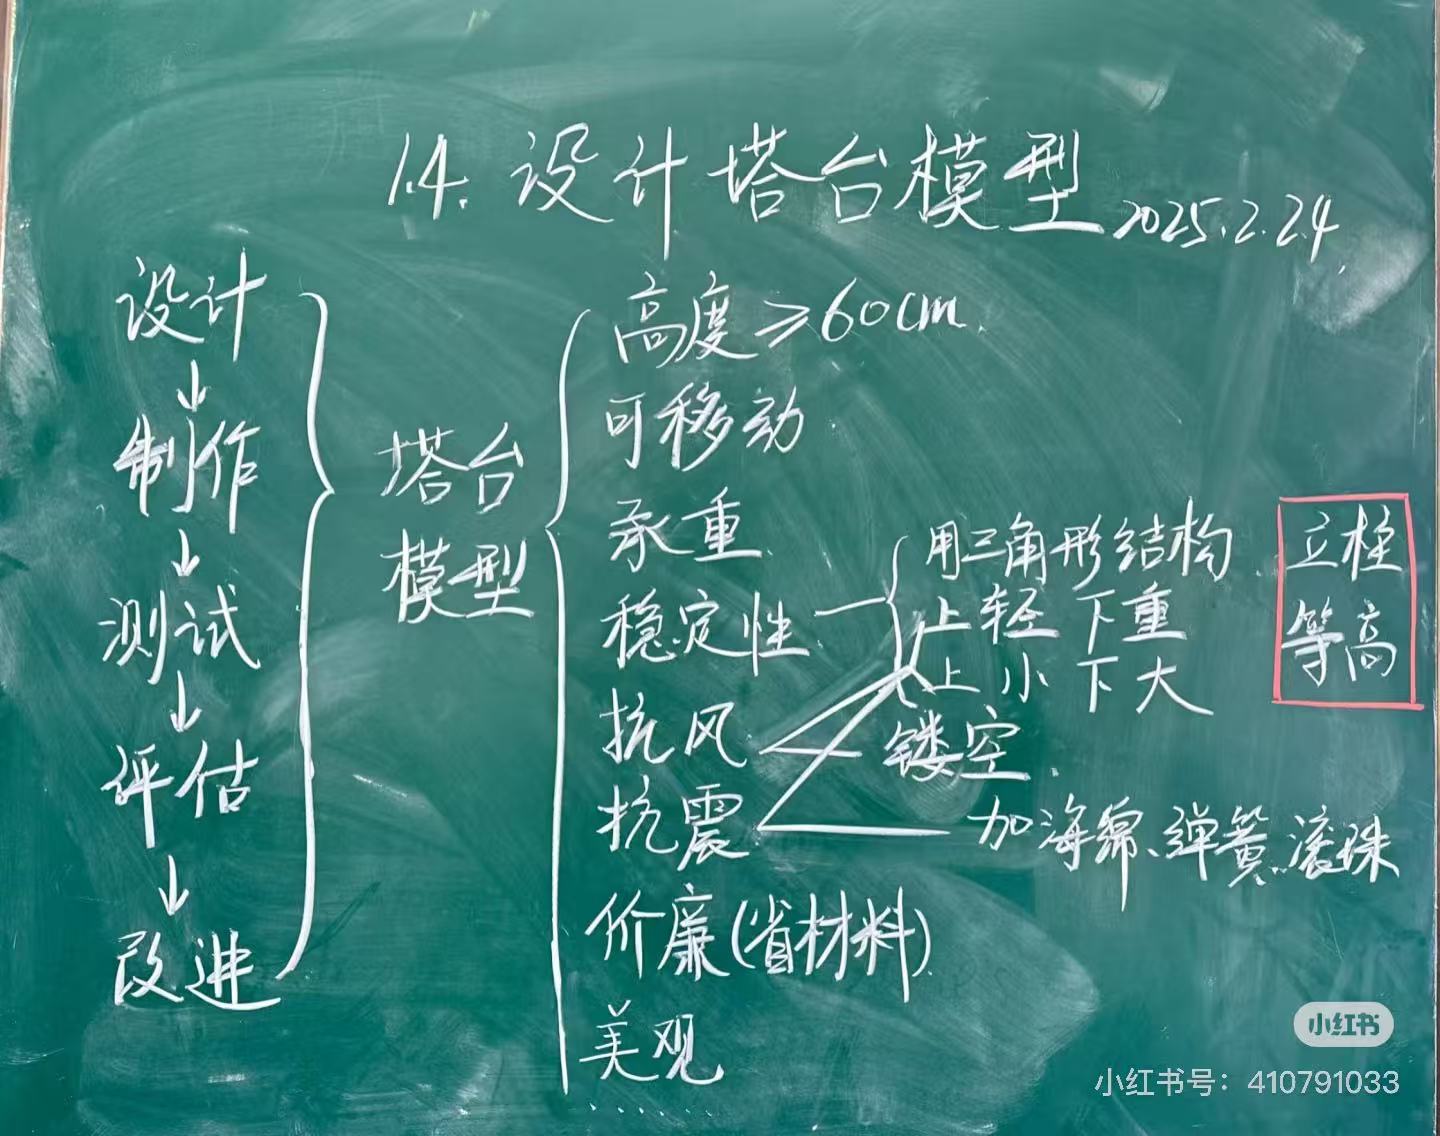 1.4. 设计塔台模型 2025.2.24
设计
↓
制作
↓
测试
↓
评估
↓
改进
塔台
模型
高度≥60cm
可移动
承重
稳定性
用三角形结构
上轻下重
上小下大
立柱
等高
抗风
镂空
抗震
加海绵、弹簧、滚珠
价廉(省材料)
美观
......
小红书
小红书号：410791033